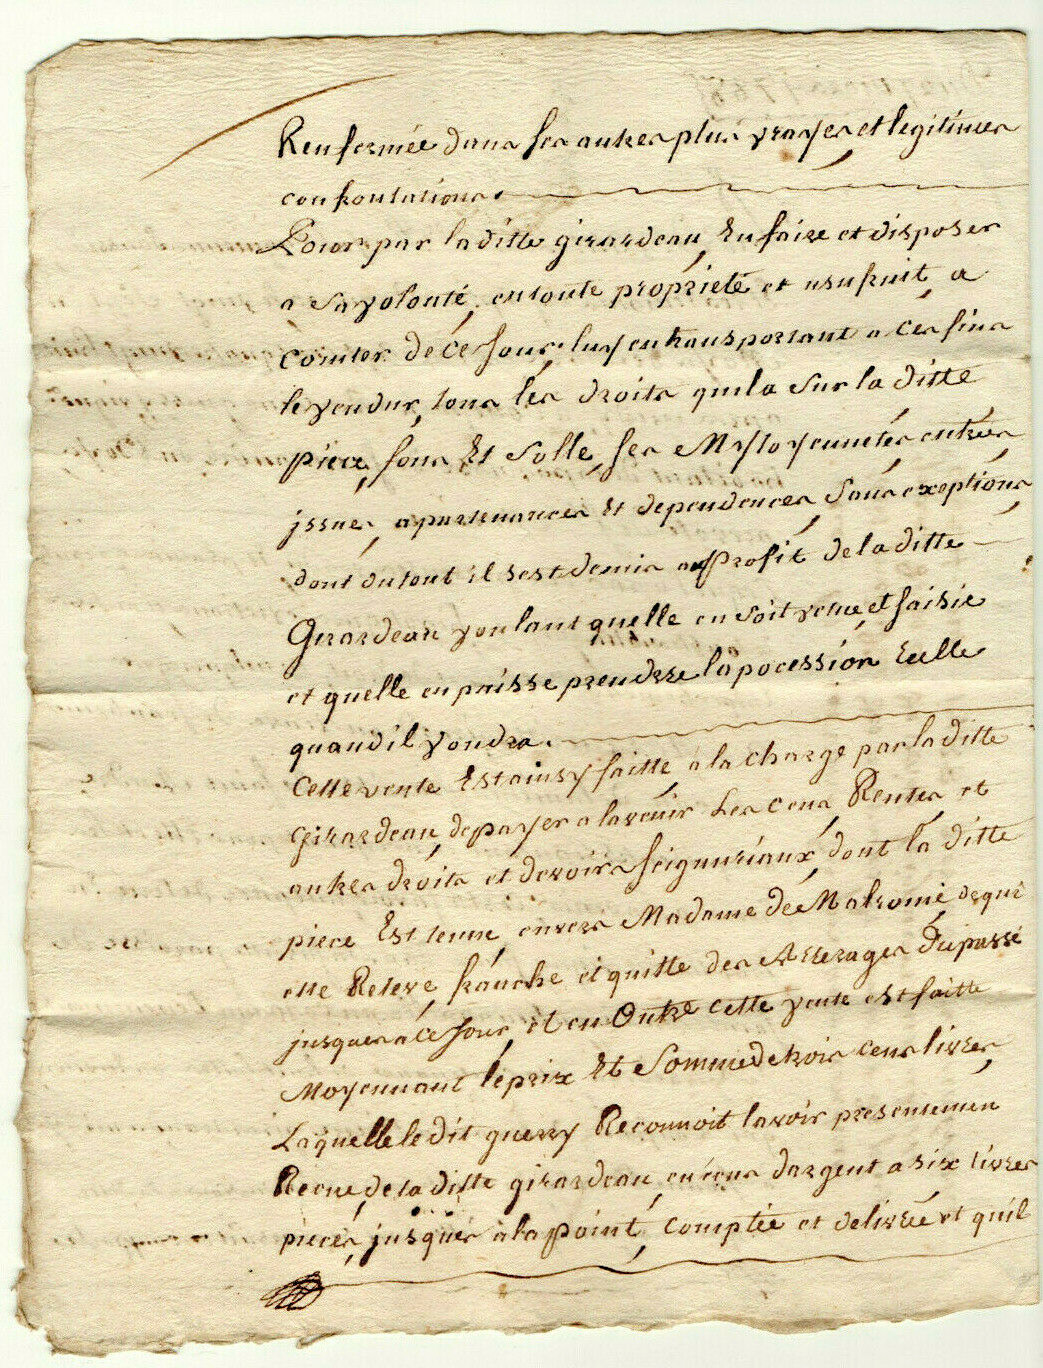 Renfermée dans ses autres plus vrayes et legitimes
confrontations.
Pour par la ditte girardeau, En faire et disposer
a sa volonté, en toute propriété et usufruit, a
comter de ce jour, luy en transportant a ces fins
le vendur, tous les droits quil a sur la ditte
piece, fons Et Solle, ses Mytoyennetés, entrées
jssues, apartenances Et dependences, Sans exeptions,
dont du tout il s'est demis au profit de la ditte
Girardeau voulant quelle en soit vetue, et saisie
et quelle en puisse prendre la pocession Relle
quand il voudra.
Cette vente Est ainsy faitte, a la charge par la ditte
girardeau, de payer a lavenir Les cens, Rentes, et
autres droits et devoirs seigneuriaux, dont la ditte
piece Est tenue, envers Madame de Malromé, de qui
elle Releve, franche et quitte des Arrerages Du passé
jusques a ce jour, et en Outre cette vente est faitte
Moyennant le prix Et Somme de trois cens livres,
Laquelle le dit guerry Reconnoit lavoir presentemen
Recue, de la ditte girardeau, en ecus dargent a six livres
pieces, jusques a la point, comptée et delivrée et quil